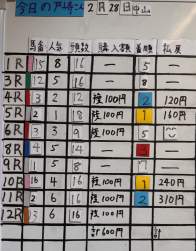 今日の戸崎さん 2月28日中山
馬番 人気 頭数 購入額 着順 払戻
1R 15 8 16 — 15 —
3R 12 5 16 — 8 —
4R 13 2 12 複100円 2 120円
5R 2 1 18 複100円 1 160円
6R 3 3 9 複100円 5
8R 4 5 14 — 3 —
9R 11 5 8 — 7 —
10R 16 4 16 複100円 1 240円
11R 2 6 16 複100円 2 310円
12R 3 6 16 複100円
計600円 計